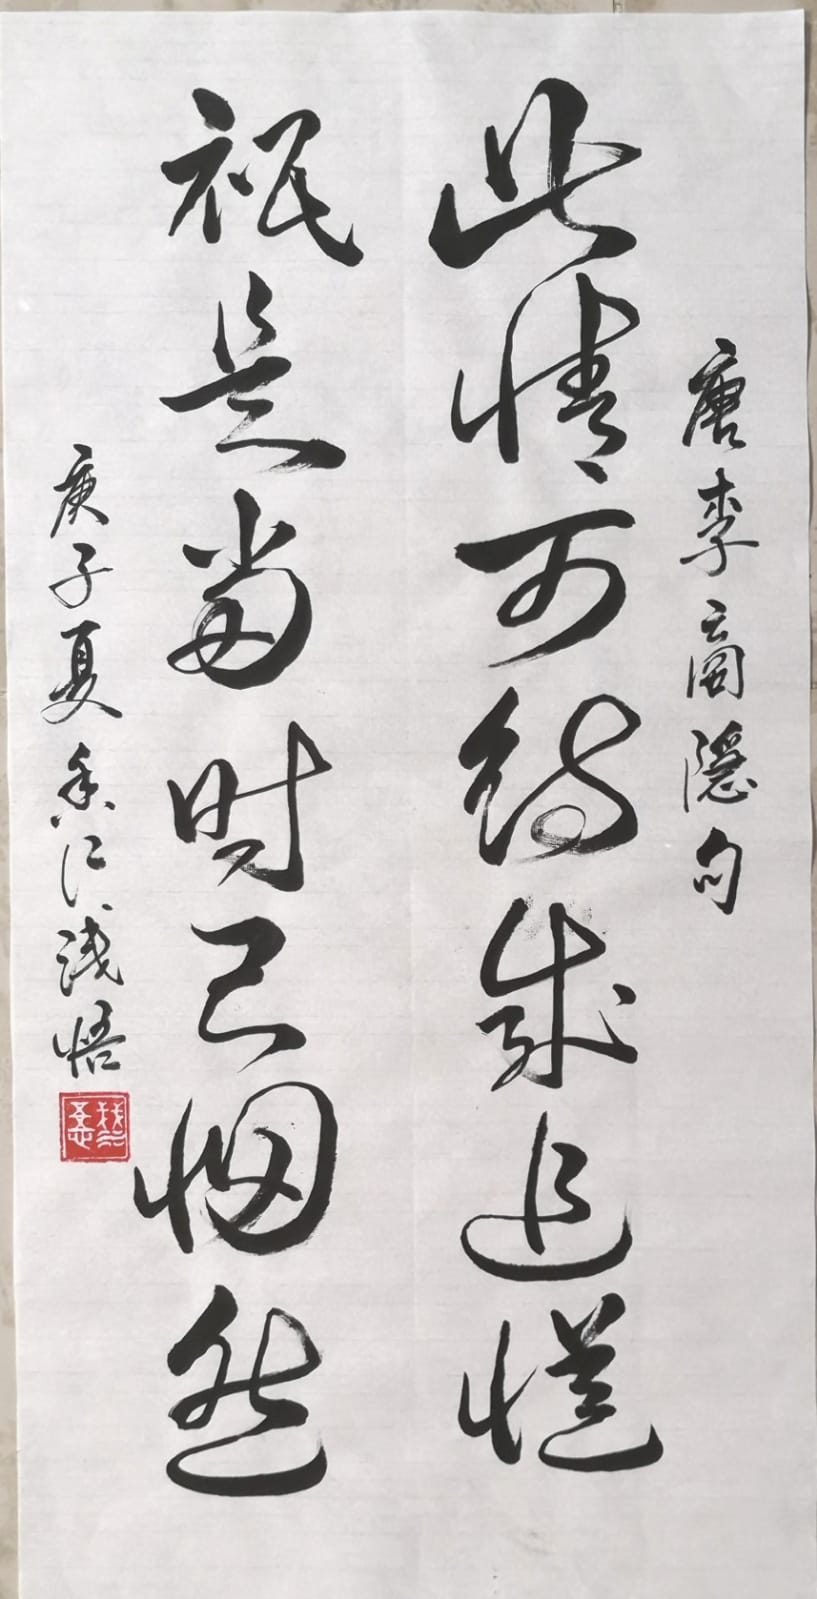 唐李商隐句
此情可待成追憶
祇是当时已惘然
庚子夏仁浅悟